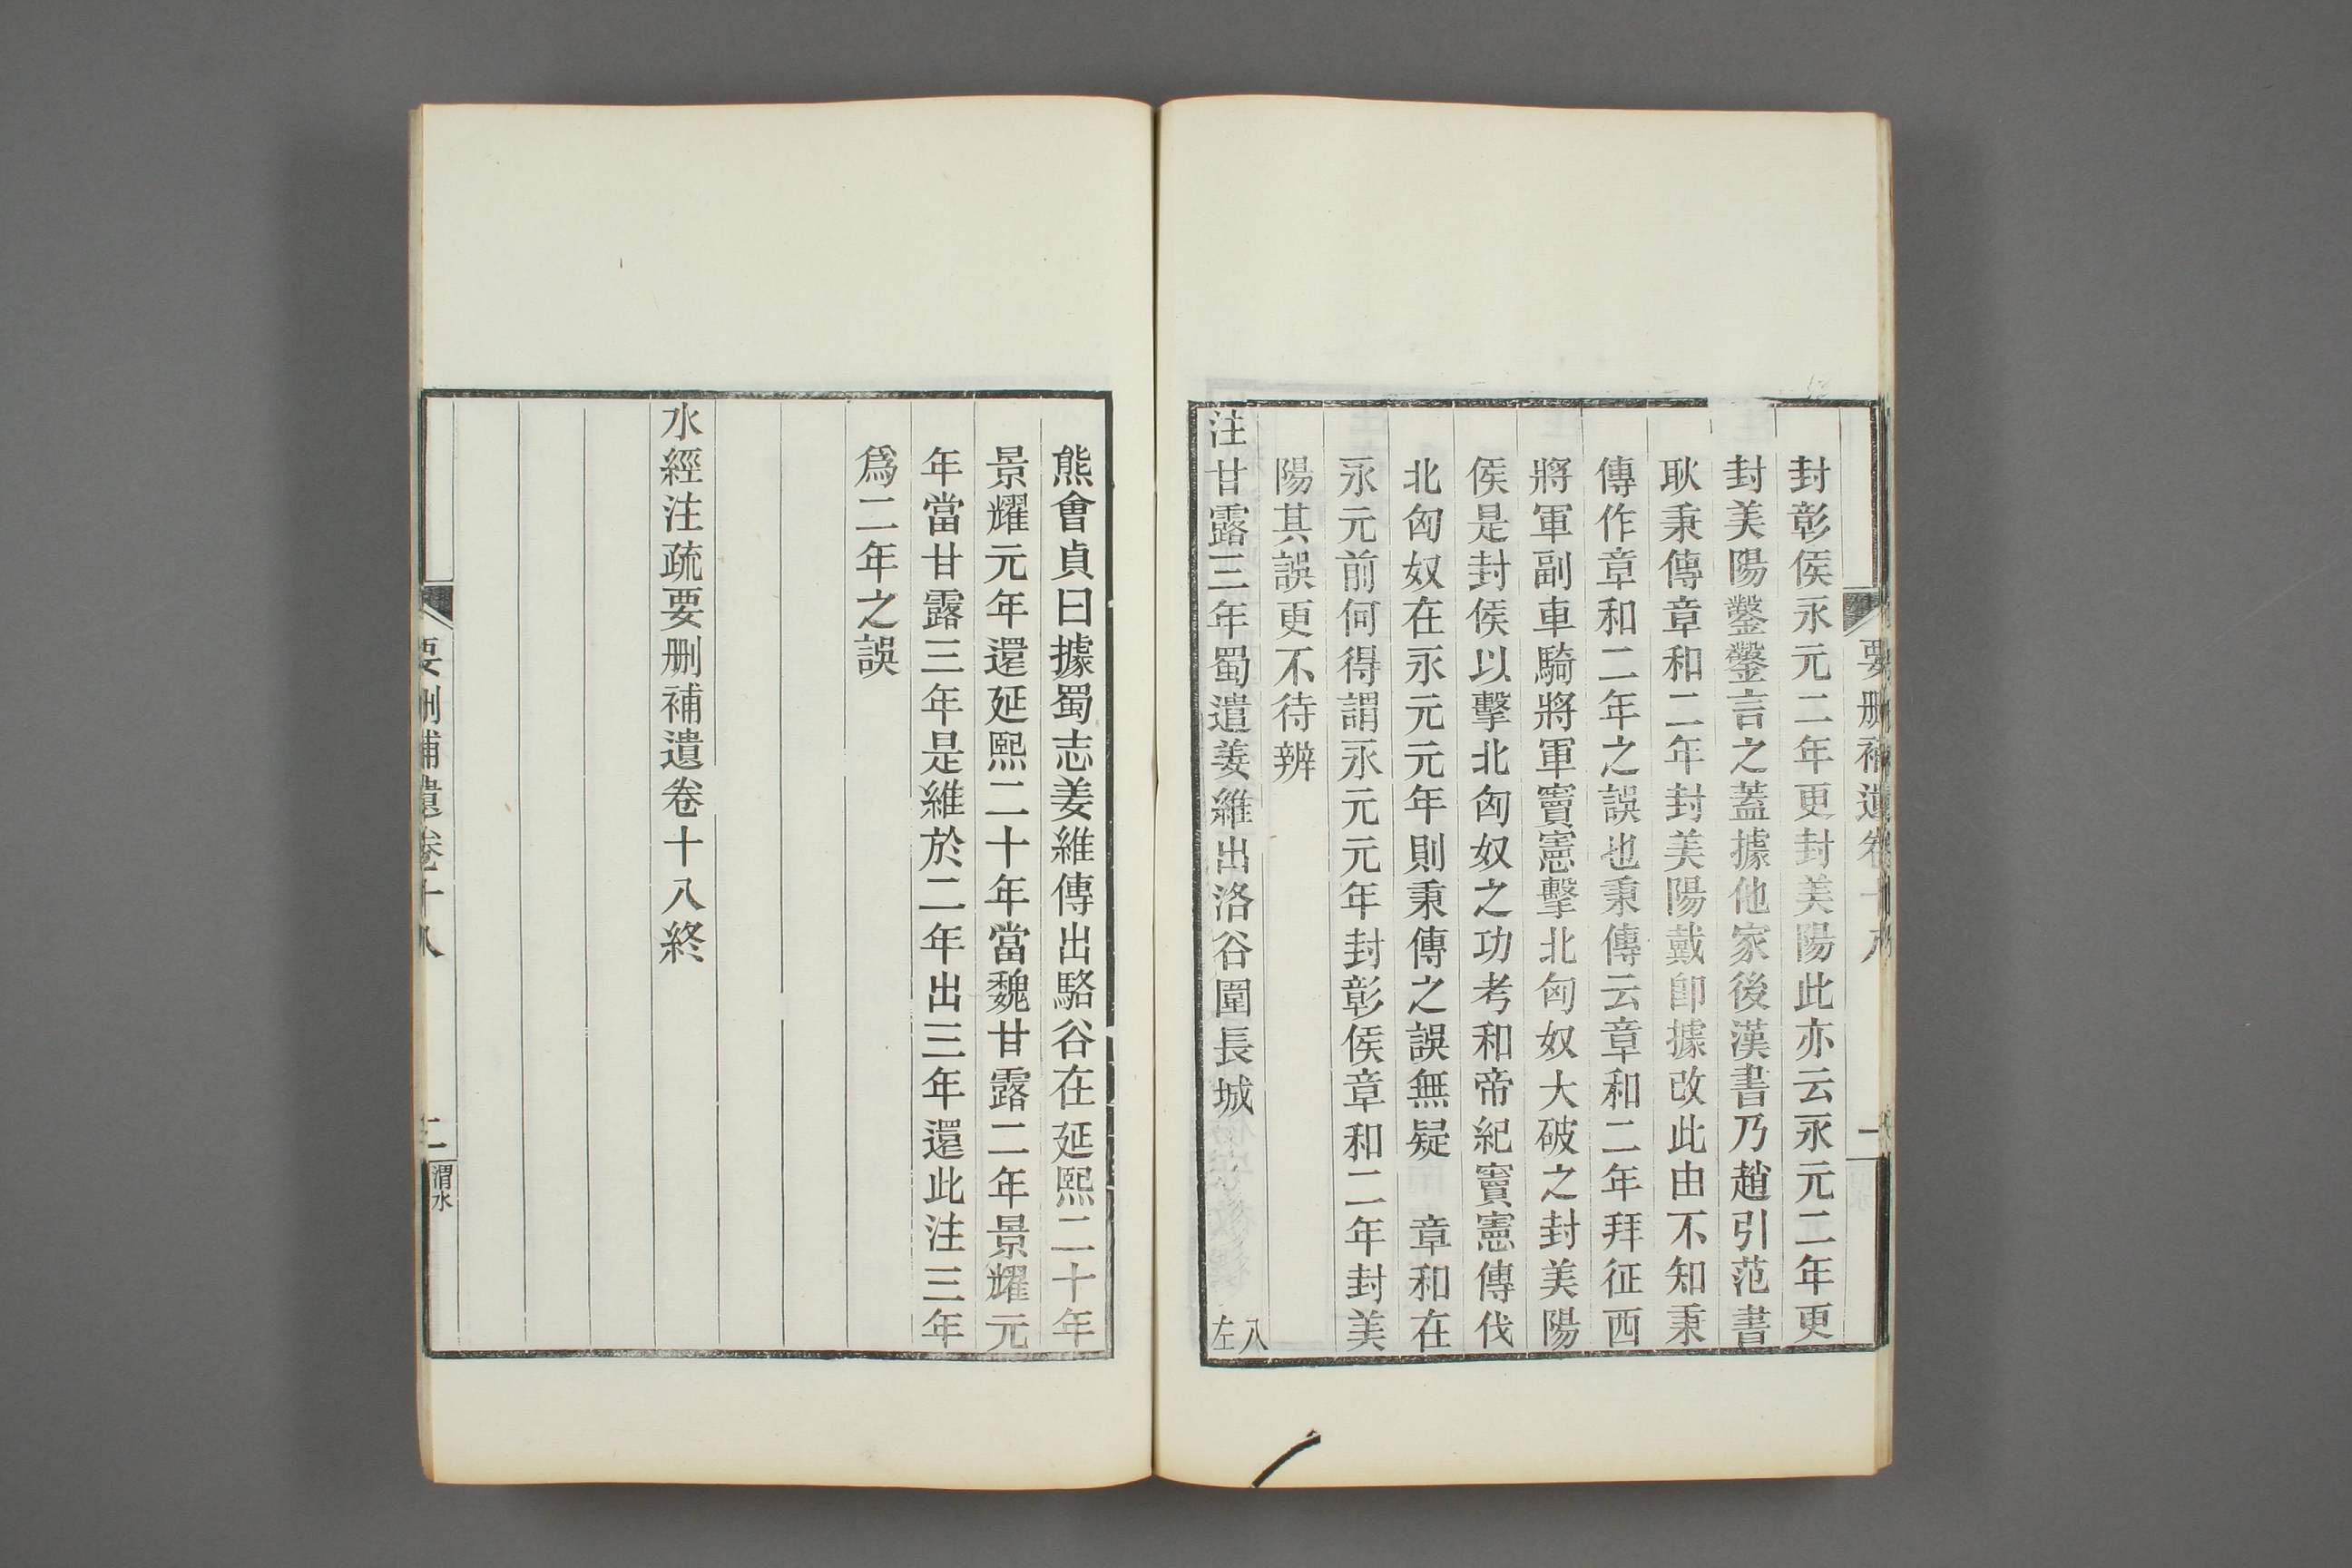 要删補遺卷十八
一
封彰侯永元二年更封美陽此亦云永元二年更
封美陽鑿鑿言之蓋據他家後漢書乃趙引范書
耿秉傳章和二年封美陽戴卽據改此由不知秉
傳作章和二年之誤也秉傳云章和二年拜征西
將軍副車騎將軍竇憲擊北匈奴大破之封美陽
侯是封侯以擊北匈奴之功考和帝紀竇憲傳伐
北匈奴在永元元年則秉傳之誤無疑　章和在
永元前何得謂永元元年封彰侯章和二年封美
陽其誤更不待辨
注甘露三年蜀遣姜維出洛谷圍長城
八左
熊會貞曰據蜀志姜維傳出駱谷在延熙二十年
景耀元年還延熙二十年當魏甘露二年景耀元
年當甘露三年是維於二年出三年還此注三年
爲二年之誤
水經注疏要删補遺卷十八終
要删補遺卷十八
二
渭水